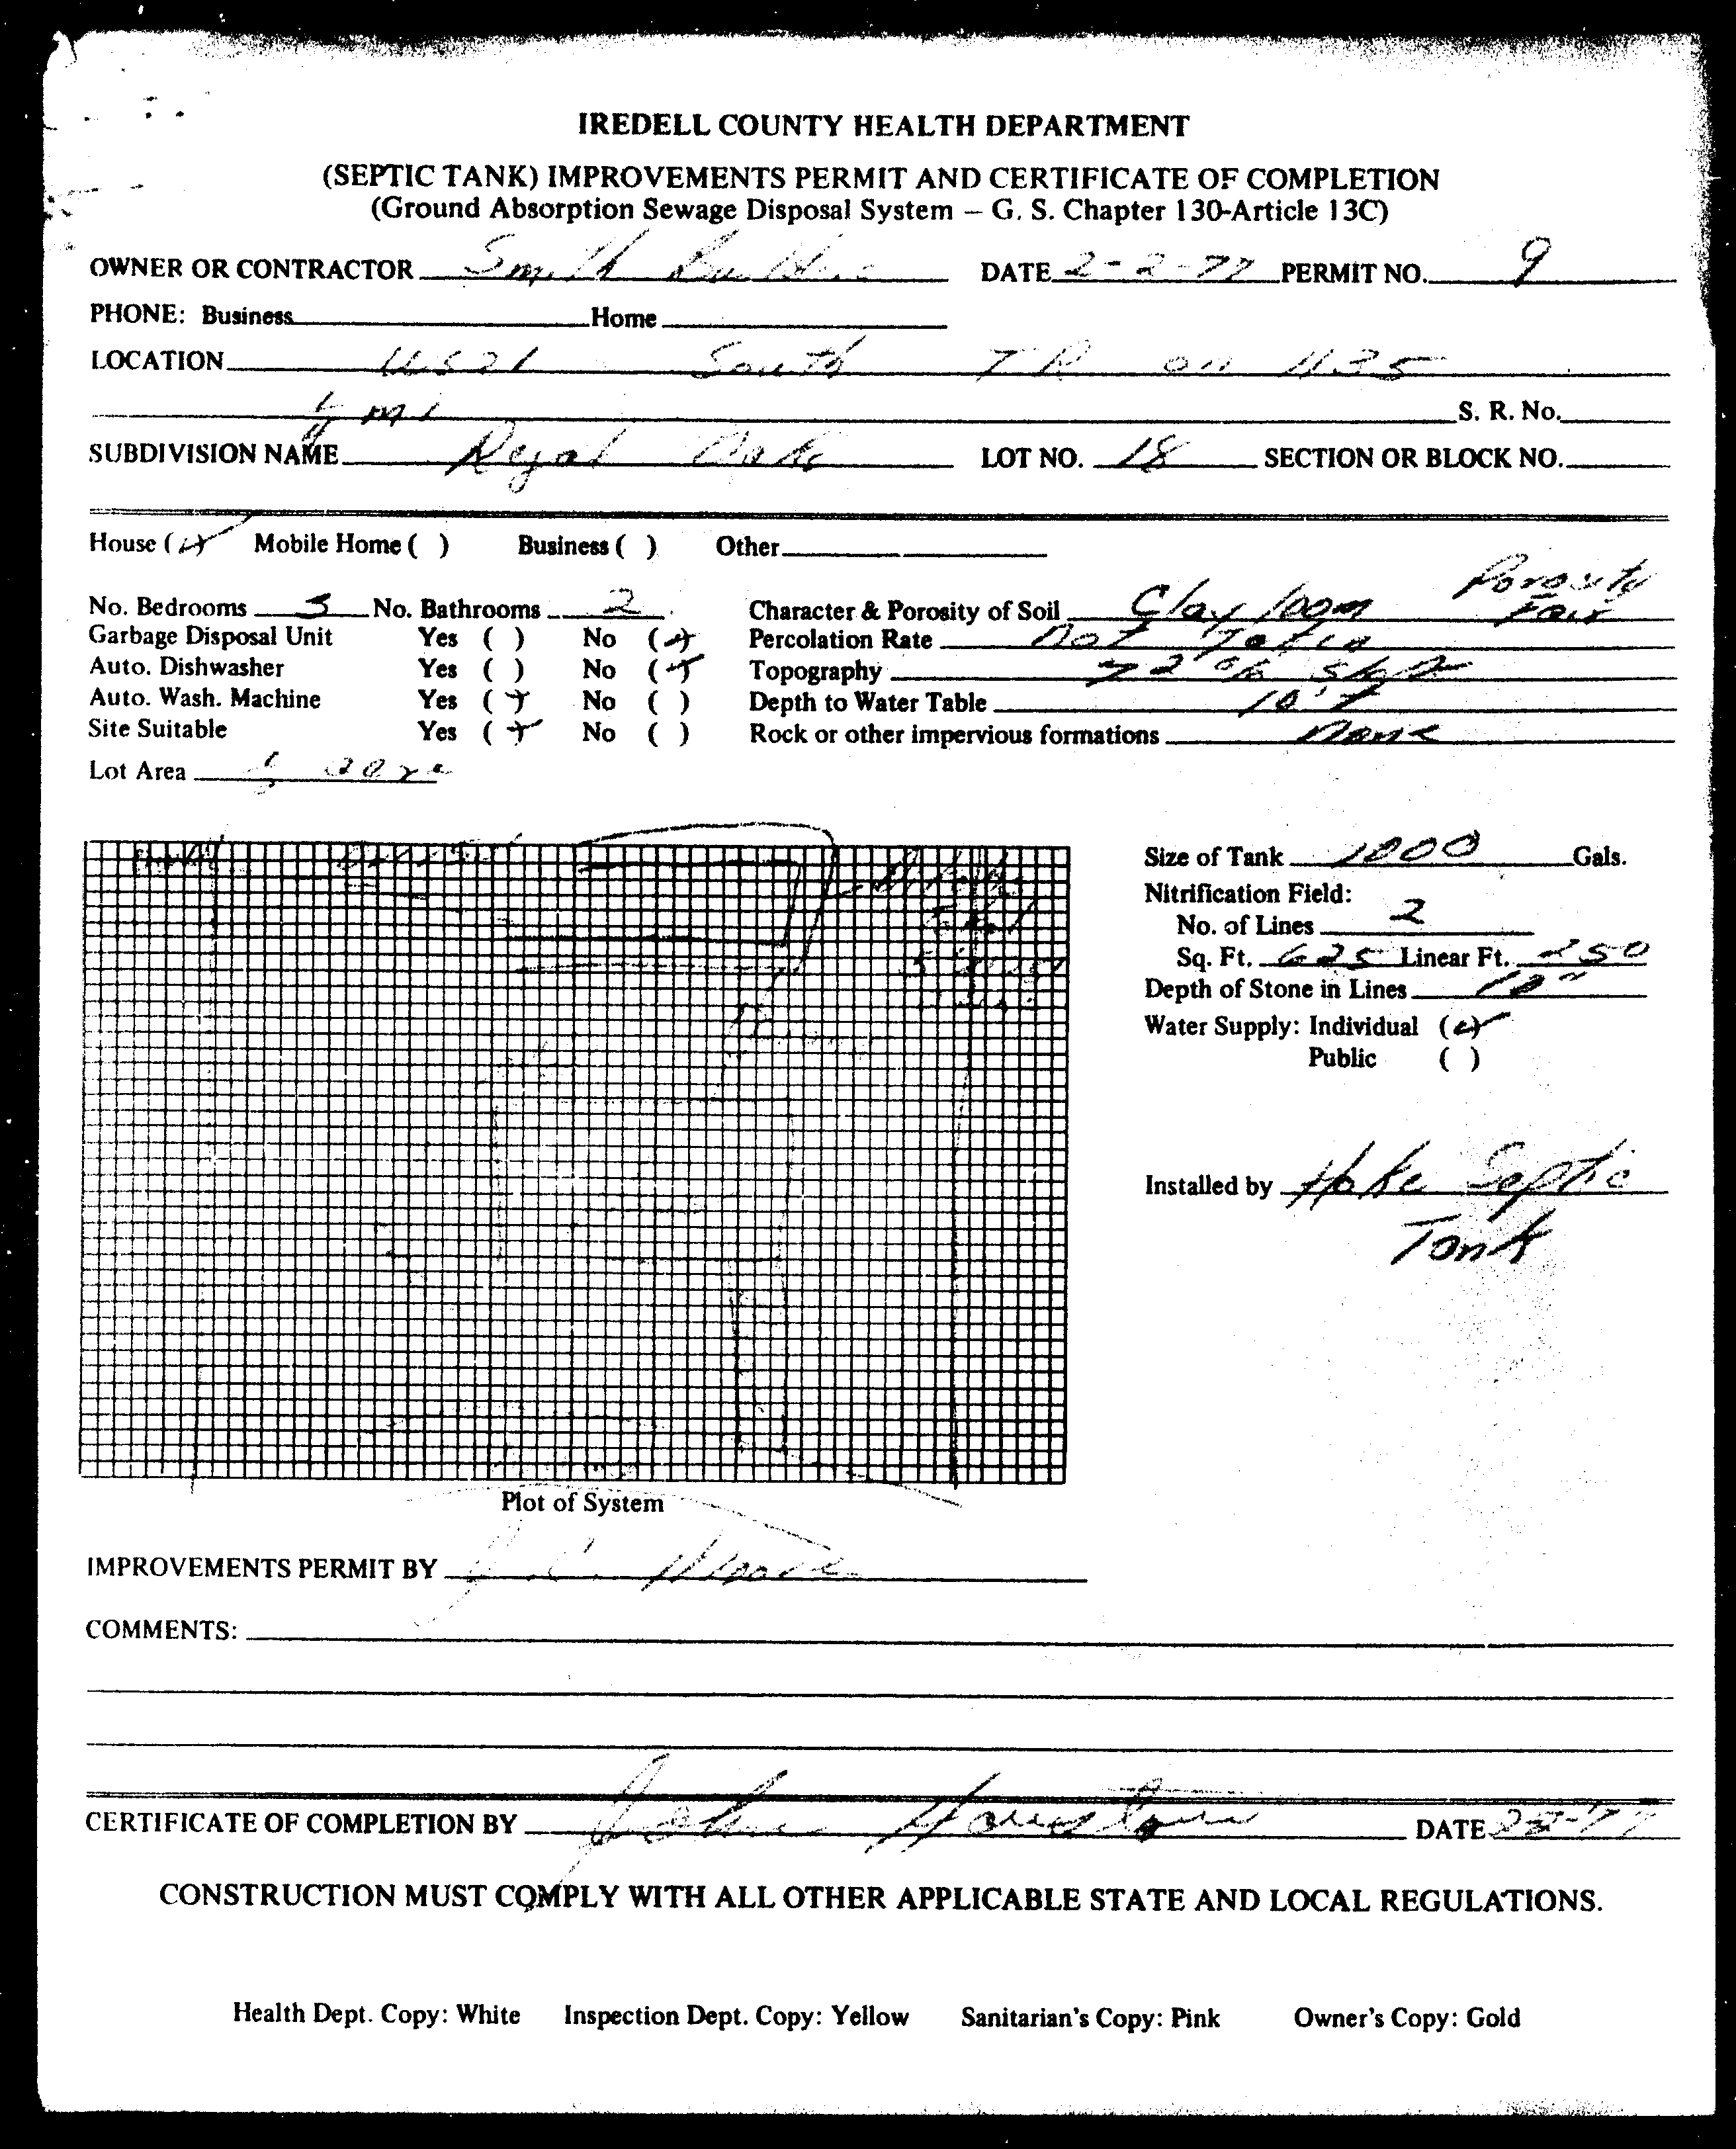 IREDELL COUNTY HEALTH DEPARTMENT
(SEPTIC TANK) IMPROVEMENTS PERMIT AND CERTIFICATE OF COMPLETION
(Ground Absorption Sewage Disposal System – G. S. Chapter 130-Article 13C)
OWNER OR CONTRACTOR Smith DATE 2-2-77 PERMIT NO. 9
PHONE: Business Home
LOCATION US 21 South T R on 1135
mi S. R. No.
SUBDIVISION NAME Regal Oaks LOT NO. 18 SECTION OR BLOCK NO.
House (✓) Mobile Home ( ) Business ( ) Other
Porosity
No. Bedrooms 3 No. Bathrooms 2 Character & Porosity of Soil Clay loam Fair
Garbage Disposal Unit Yes ( ) No (✓) Percolation Rate Not
Auto. Dishwasher Yes ( ) No (✓) Topography 2%
Auto. Wash. Machine Yes (✓) No ( ) Depth to Water Table 10'
Site Suitable Yes (✓) No ( ) Rock or other impervious formations None
Lot Area acre
Size of Tank 1000 Gals.
Nitrification Field:
No. of Lines 2
Sq. Ft. 625 Linear Ft. 250
Depth of Stone in Lines
Water Supply: Individual (✓)
Public ( )
Installed by Hoke Septic
Tank
Plot of System
IMPROVEMENTS PERMIT BY
COMMENTS:
CERTIFICATE OF COMPLETION BY John DATE
CONSTRUCTION MUST COMPLY WITH ALL OTHER APPLICABLE STATE AND LOCAL REGULATIONS.
Health Dept. Copy: White Inspection Dept. Copy: Yellow Sanitarian's Copy: Pink Owner's Copy: Gold